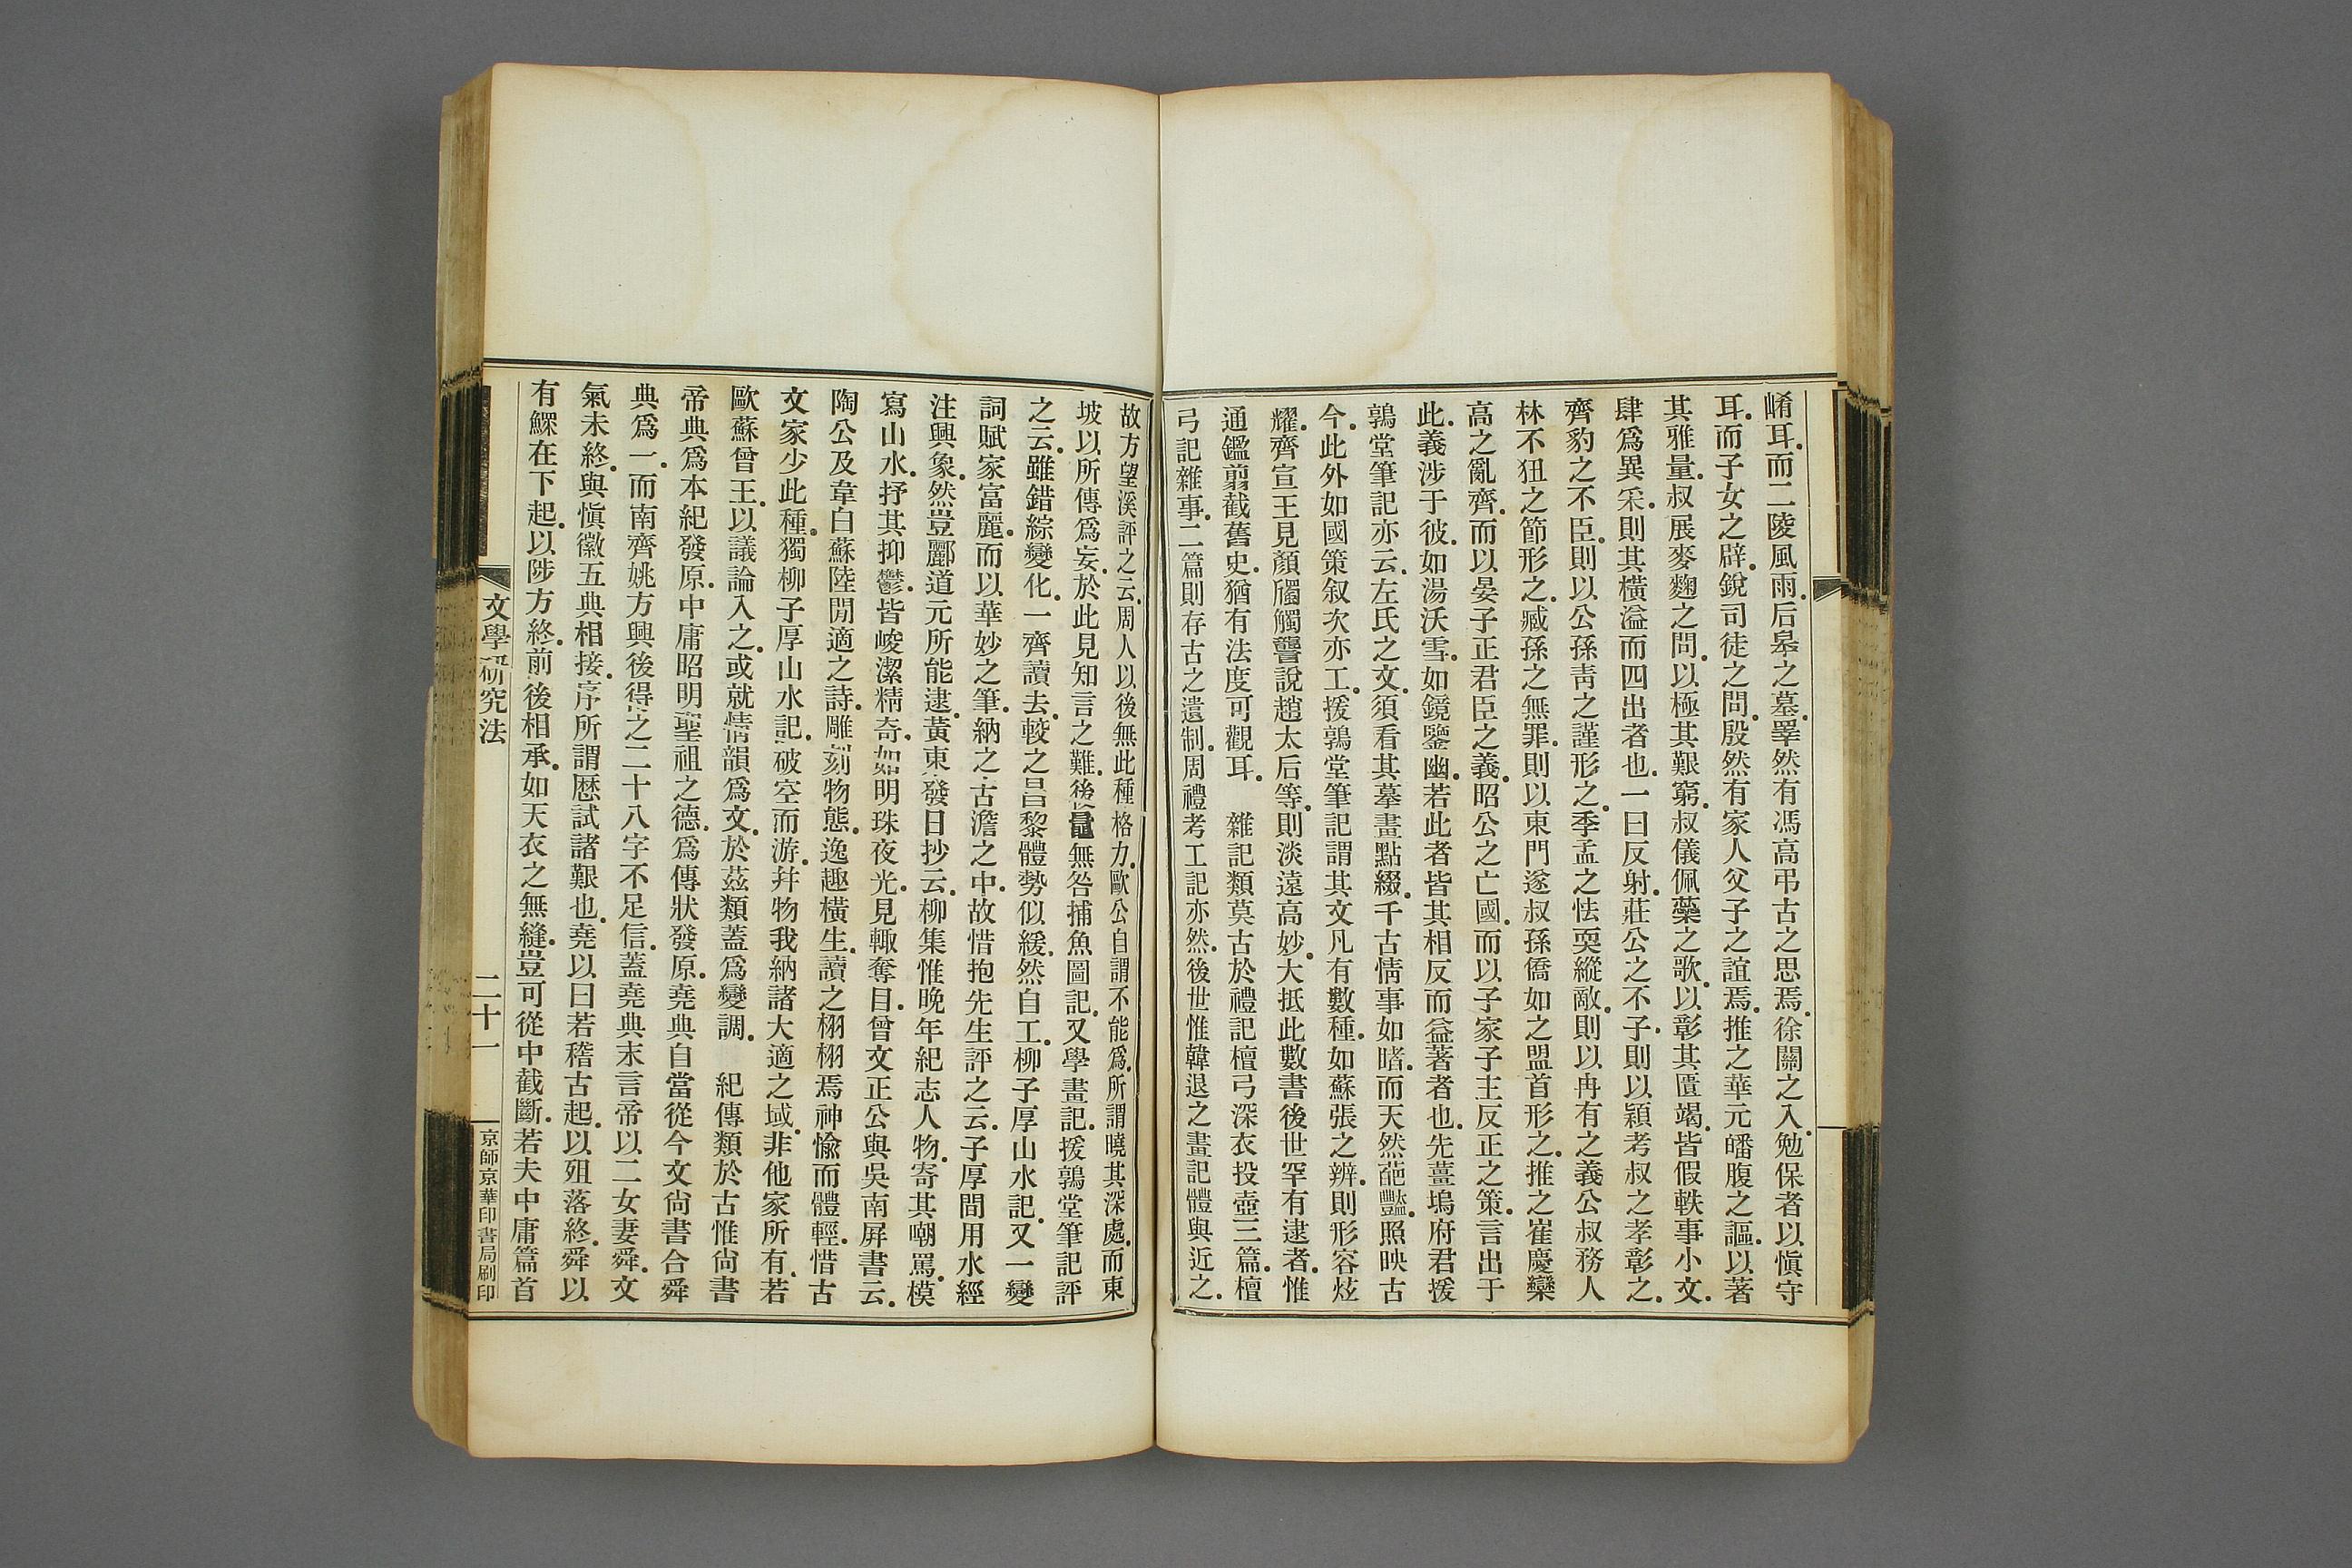 崤耳而二陵風雨后皋之墓睪然有馮高弔古之思焉徐關之入勉保者以愼守
耳而子女之辟銳司徒之問殷然有家人父子之誼焉推之華元皤腹之謳以著
其雅量叔展麥麴之問以極其艱窮叔儀佩蘂之歌以彰其匱竭皆假軼事小文
肆爲異采則其橫溢而四出者也一曰反射莊公之不子則以穎考叔之孝彰之
齊豹之不臣則以公孫靑之謹形之季孟之怯耎縱敵則以冉有之義公叔務人
林不狃之節形之臧孫之無罪則以東門遂叔孫僑如之盟首形之推之崔慶欒
高之亂齊而以晏子正君臣之義昭公之亡國而以子家子主反正之策言出于
此義涉于彼如湯沃雪如鏡鑒幽若此者皆其相反而益著者也先薑塢府君援
鶉堂筆記亦云左氏之文須看其摹畫點綴千古情事如睹而天然葩豔照映古
今此外如國策叙次亦工援鶉堂筆記謂其文凡有數種如蘇張之辨則形容炫
耀齊宣王見顏斶觸讋說趙太后等則淡遠高妙大抵此數書後世罕有逮者惟
通鑑剪截舊史猶有法度可觀耳　雜記類莫古於禮記檀弓深衣投壺三篇檀
弓記雜事二篇則存古之遺制周禮考工記亦然後世惟韓退之畫記體與近之
故方望溪評之云周人以後無此種格力歐公自謂不能爲所謂曉其深處而東
坡以所傳爲妄於此見知言之難後量無咎捕魚圖記又學畫記援鶉堂筆記評
之云雖錯綜變化一齊讀去較之昌黎體勢似緩然自工柳子厚山水記又一變
詞賦家富麗而以華妙之筆納之古澹之中故惜抱先生評之云子厚間用水經
注興象然豈酈道元所能逮黃東發日抄云柳集惟晚年紀志人物寄其嘲罵模
寫山水抒其抑鬱皆峻潔精奇如明珠夜光見輙奪目曾文正公與吳南屛書云
陶公及韋白蘇陸閒適之詩雕刻物態逸趣橫生讀之栩栩焉神愉而體輕惜古
文家少此種獨柳子厚山水記破空而游幷物我納諸大適之域非他家所有若
歐蘇曾王以議論入之或就情韻爲文於茲類蓋爲變調　紀傳類於古惟尙書
帝典爲本紀發原中庸昭明聖祖之德爲傳狀發原堯典自當從今文尙書合舜
典爲一而南齊姚方興後得之二十八字不足信蓋堯典末言帝以二女妻舜文
氣未終與愼徽五典相接序所謂歷試諸艱也堯以曰若稽古起以殂落終舜以
有鰥在下起以陟方終前後相承如天衣之無縫豈可從中截斷若夫中庸篇首
文學研究法
二十一
京師京華印書局刷印